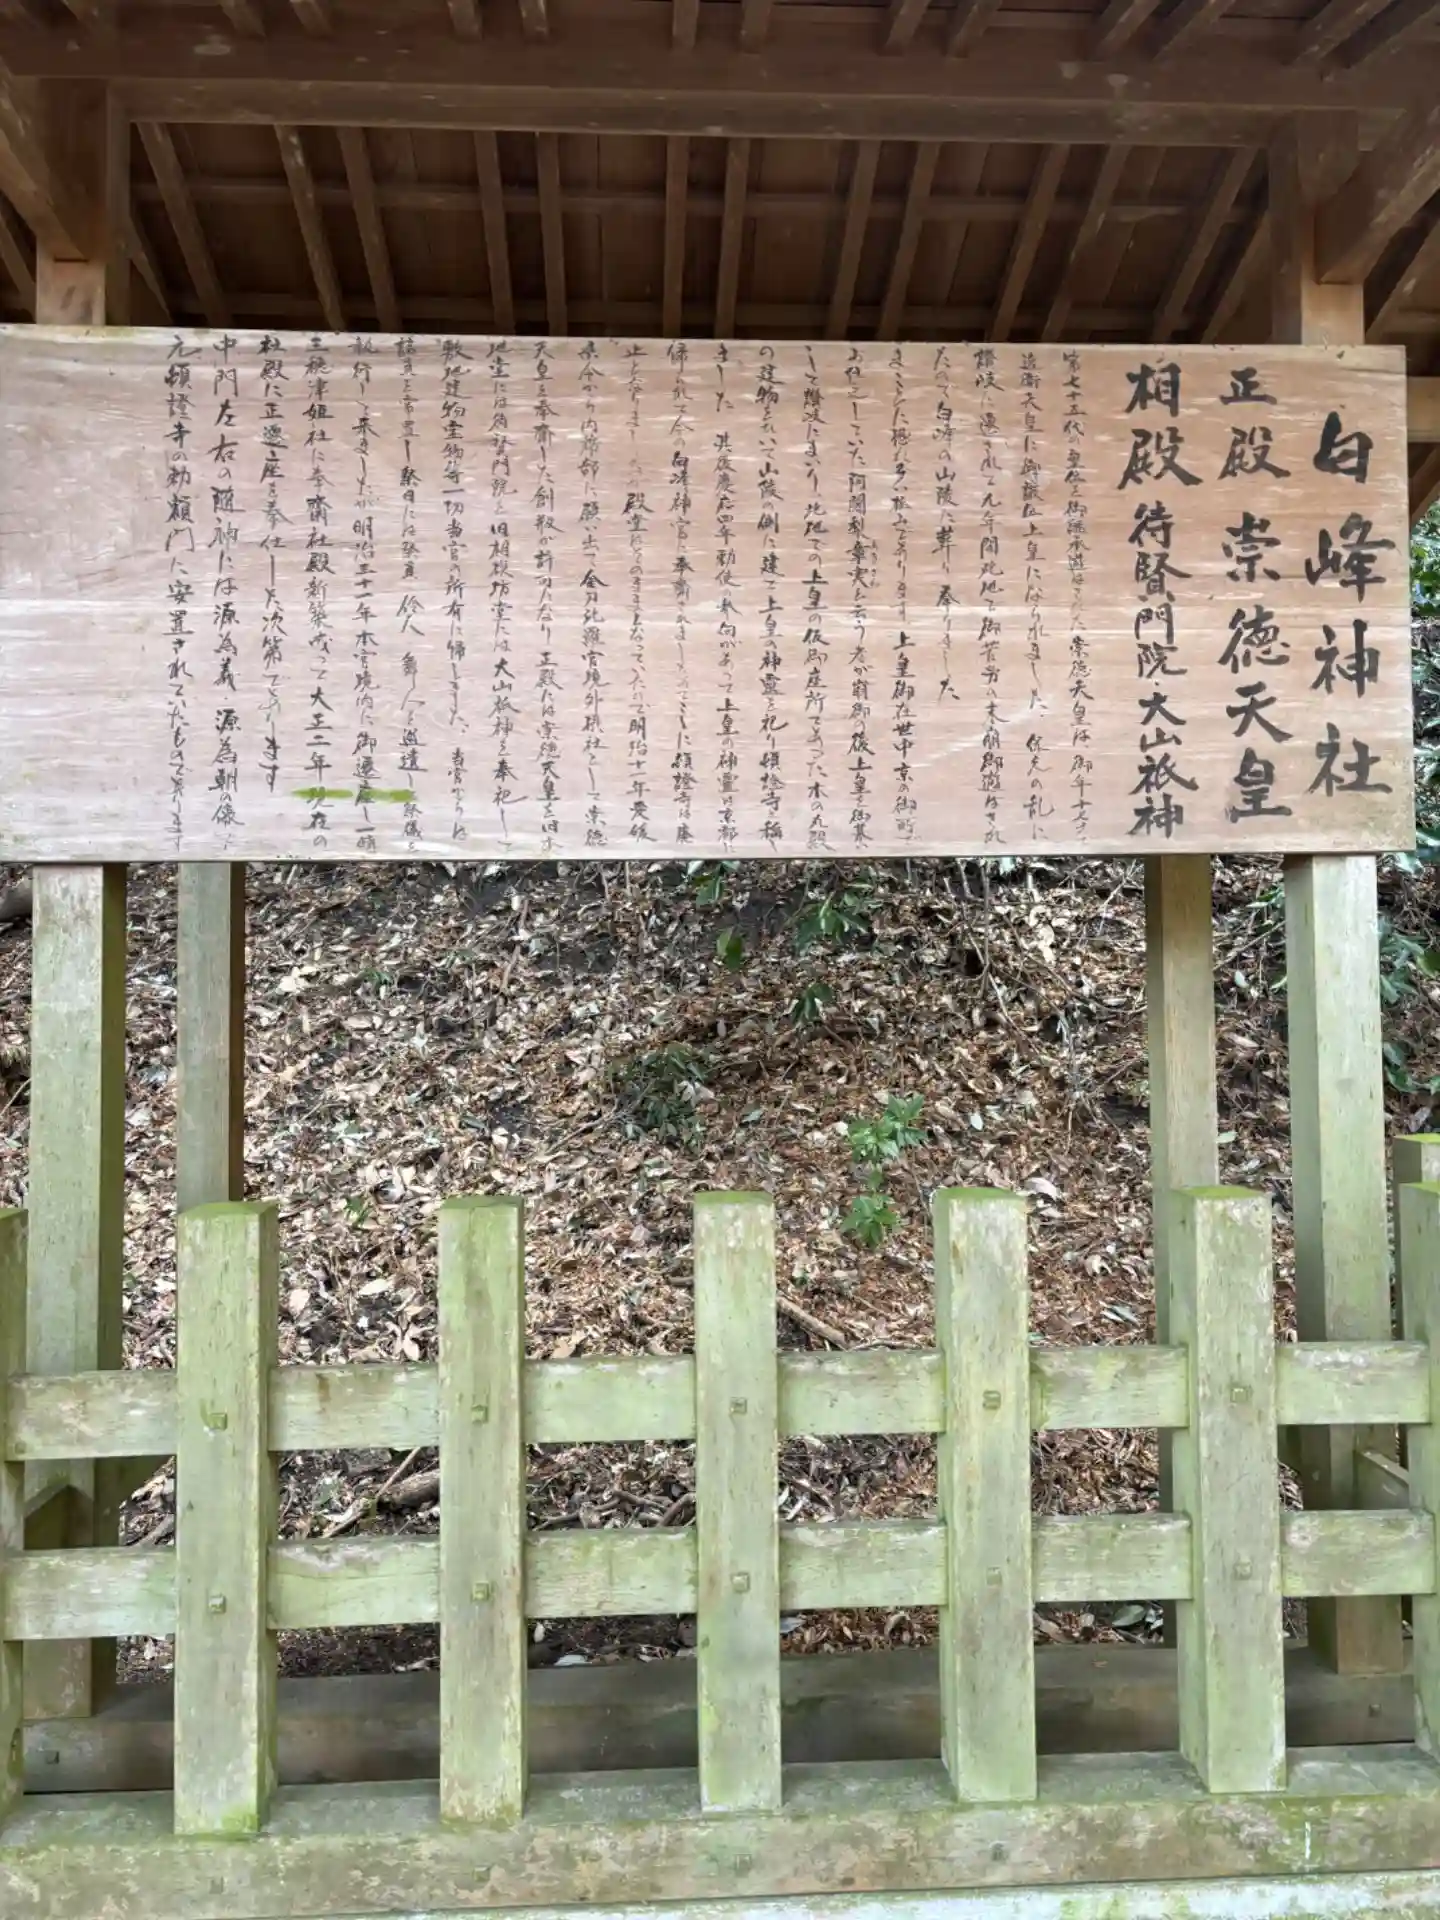 白峰神社
正殿 崇徳天皇
相殿 待賢門院・大山祇神
第七十五代の皇位を御継承遊ばされた崇徳天皇は、御年十七才で
近衛天皇に御譲位上皇になられました、保元の乱に
讃岐に遷されて九年間此地で御苦労の末崩御遊ばされ
たので白峰の山陵に葬り奉りました
上皇御在世中京の御所で
お仕えしていた阿闍梨章実と云う者が崩御の後上皇を御慕い
して讃岐にまいり、此地での上皇の仮御座所であった木の丸殿
の建物を以て山陵の側に建て上皇の神霊を祀り頓證寺と称し
ました 其後慶応四年勅使の参向があって上皇の神霊は京都に
帰られて今の白峰神宮に奉斎されましたのでここに頓證寺は廃
止となりましたが殿堂はそのままとなっていたので明治十一年
県令から内務部に願い出て金刀比羅宮境外摂社として崇徳
天皇を奉斎した創祀が許可になり正殿には崇徳天皇を
地堂には待賢門院を旧相模坊堂には大山祇神を奉祀し
敷地建物宝物等一切当宮の所有に帰しました、当宮からは
詰員を常置し祭日には祭員 伶人 舞人を派遣し祭儀を
執行して来ましたが明治三十一年本宮境内に御遷座し一時
三穂津姫社に奉斎社殿新築成って大正二年現在の
社殿に正遷座を奉仕した次第であります
中門左右の随神には源為義 源為朝の像で
元頓證寺の勅額門に安置されていたものであります